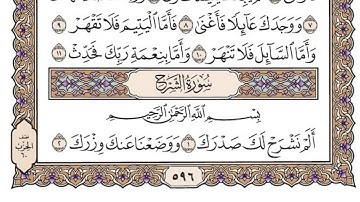 وَوَجَدَكَ عَآئِلًا فَأَغْنَىٰ ٨ فَأَمَّا ٱلْيَتِيمَ فَلَا تَقْهَرْ ٩
وَأَمَّا ٱلسَّآئِلَ فَلَا تَنْهَرْ ١٠ وَأَمَّا بِنِعْمَةِ رَبِّكَ فَحَدِّثْ ١١
سُورَةُ الشَّرْحِ
بِسْمِ ٱللَّهِ ٱلرَّحْمَٰنِ ٱلرَّحِيمِ
أَلَمْ نَشْرَحْ لَكَ صَدْرَكَ ١ وَوَضَعْنَا عَنكَ وِزْرَكَ ٢
٥٩٦